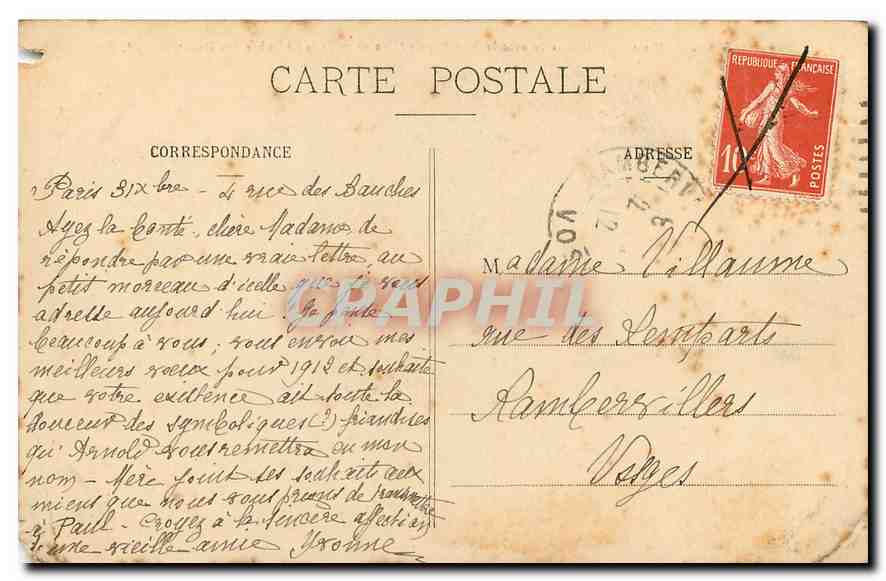 CARTE POSTALE
CORRESPONDANCE
Paris 31 Xbre - 4 rue des Bauches
Ayez la bonté, chère Madame de
répondre par une vraie lettre, au
petit morceau d'icelle que je vous
adresse aujourd'hui. Je pense
beaucoup à vous, vous envoie mes
meilleurs vœux pour 1912 et souhaite
que votre existence ait toute la
douceur des symboliques (?) friandises
qu'Arnold vous remettra en mon
nom - Mère joint ses souhaits aux
miens que nous vous prions de transmettre
à Paul - Croyez à la sincère affection
d'une vieille amie Yvonne
ADRESSE
REPUBLIQUE FRANÇAISE
10
POSTES
VOS
Madame Villaume
rue des Remparts
Rambervillers
Vosges
CPAPHIL